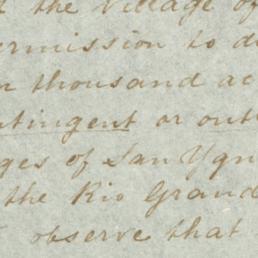 the village of
ermission to d
thousand ac
ntingent or out
ges of San Ygn
the Rio Grand
observe that